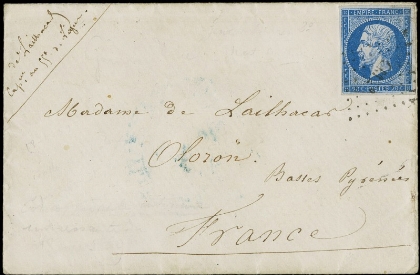 de Lailhacar
au 55e de ligne
EMPIRE FRANC
Madame de Lailhacar
Oloron
Basses Pyrénées
France